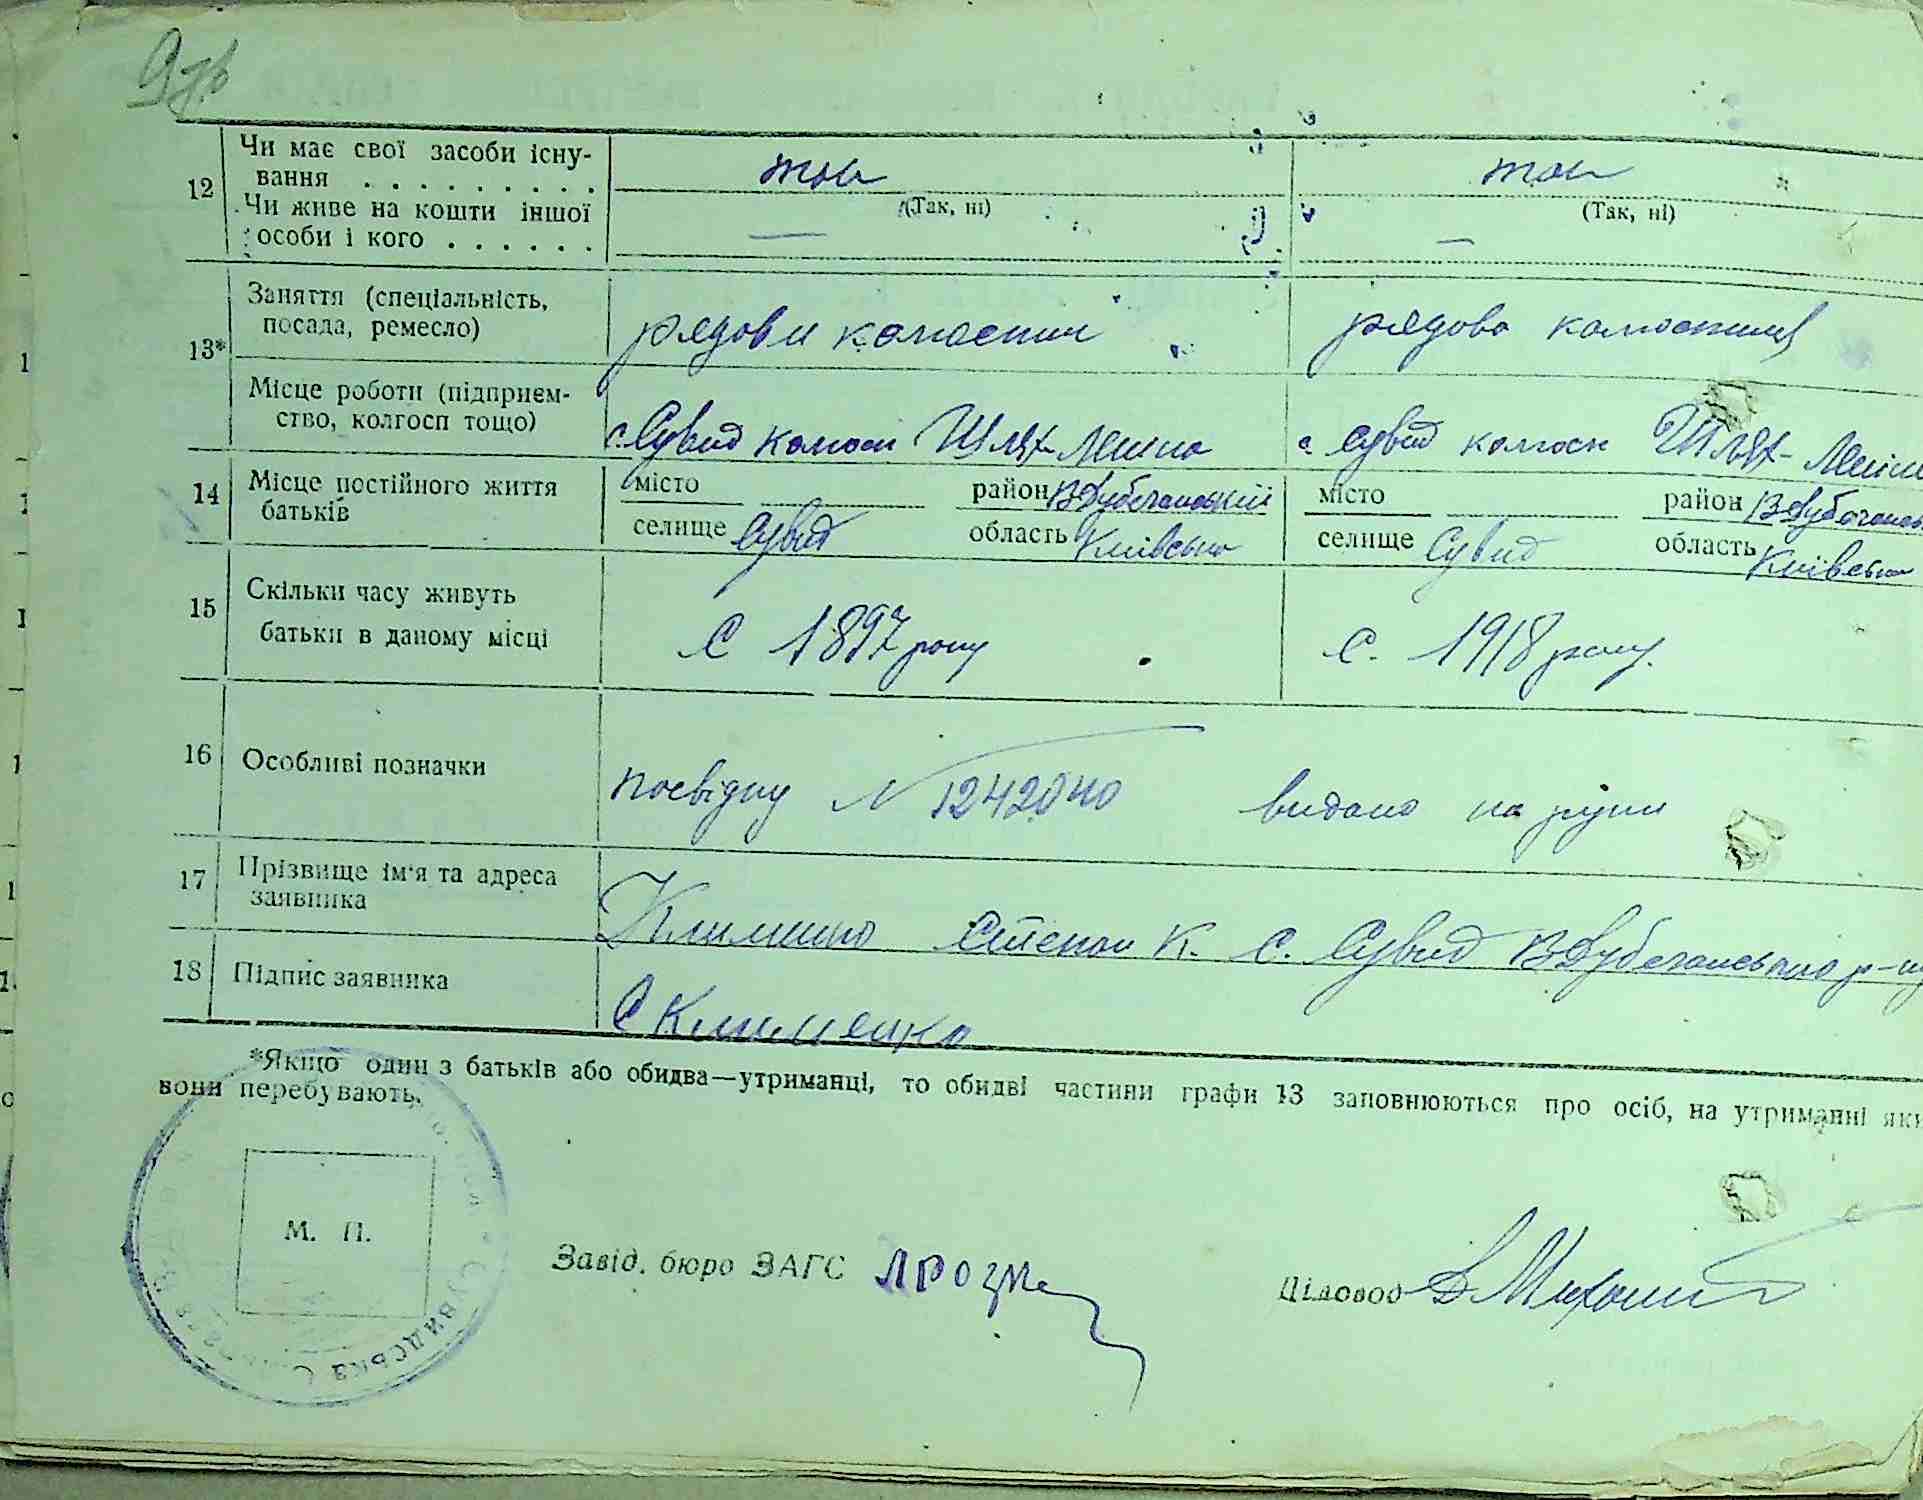 12 Чи має свої засоби існу-
вання . . . . . . . . . так так
(Так, ні) (Так, ні)
Чи живе на кошти іншої
особи і кого . . . . . . — —
13* Заняття (спеціальність,
посада, ремесло) рядови колгоспник рядова колгоспниця
Місце роботи (підприєм-
ство, колгосп тощо) с. Сувид колгосп Шлях Леніна с. Сувид колгосп Шлях Леніна
14 Місце постійного життя
батьків
місто район ВДубечанський місто район ВДубечанськ
селище Сувид область Київська селище Сувид область Київська
15 Скільки часу живуть
батьки в даному місці С 1897 року С. 1918 року.
16 Особливі позначки посвідку № 1242040 видано на руки
17 Прізвище ім'я та адреса
заявника Клименко Степан К. С. Сувид ВДубечанського р-ну
18 Підпис заявника С Клименко
*Якщо один з батьків або обидва—утриманці, то обидві частини графи 13 заповнюються про осіб, на утриманні яки
вони перебувають.
М. П.
Завід. бюро ЗАГС
Діловод
Сувидська